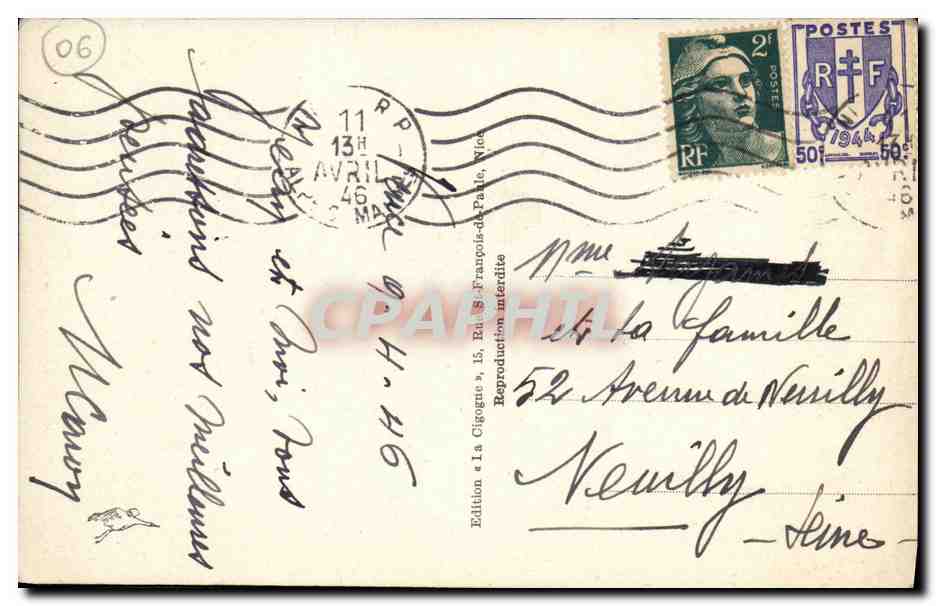 06
Nice 9.4.46
et moi, vous
nos meilleures
pensées
11
13H
AVRIL
46
2F
POSTES
RF
POSTES
RF
1944
50c 50c
Edition « La Cigogne », 15, Rue St-François-de-Paule, Nice
Reproduction interdite
CPAPHIL
Mme
et la famille
52 Avenue de Neuilly
Neuilly
- Seine -